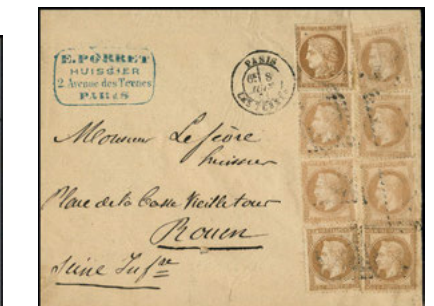 E. PORRET
HUISSIER
2. Avenue des Ternes
PARIS
PARIS
LES TERNES
Monsieur Lefèvre
huissier
Place de la Basse Vieille tour
Rouen
Seine Infre